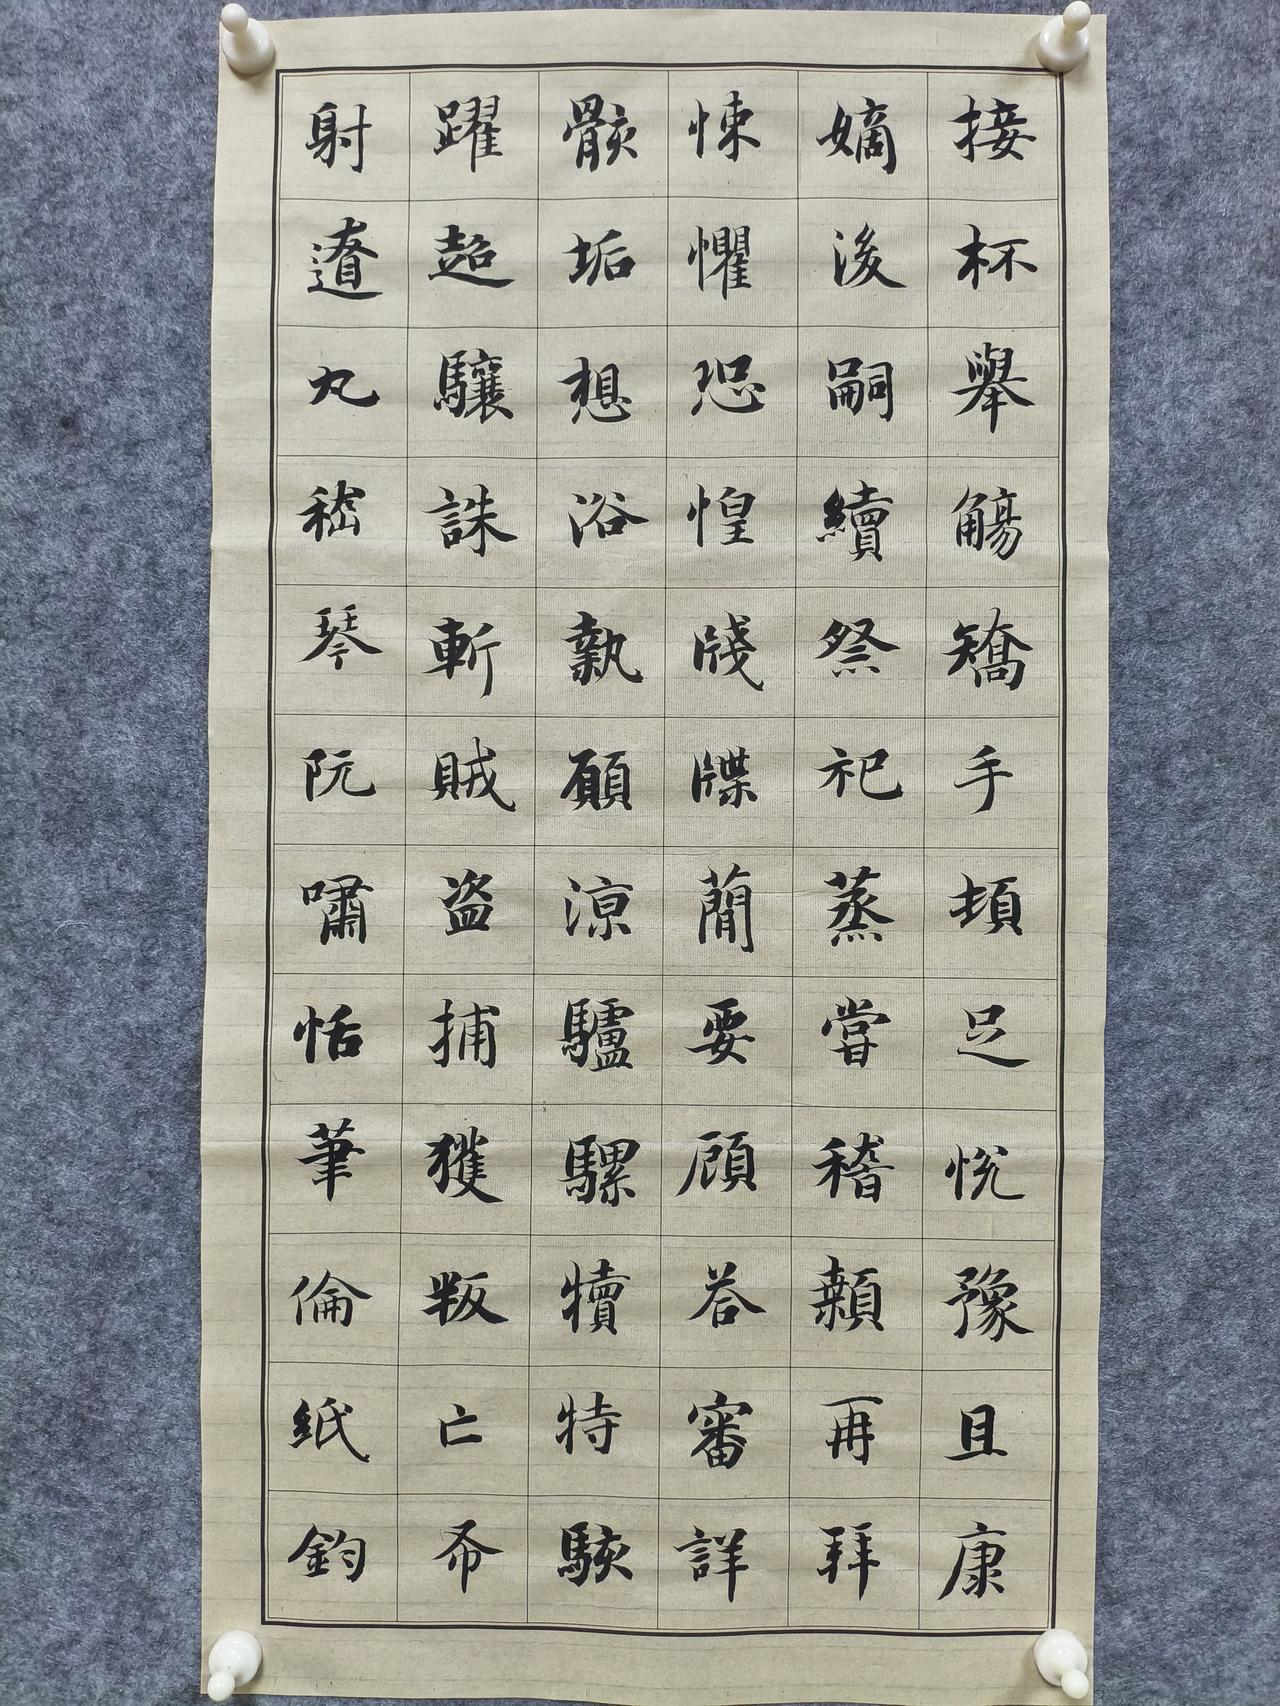 接杯舉觴矯手頓足悅豫且康
嫡後嗣續祭祀蒸嘗稽顙再拜
悚懼恐惶牋牒簡要顧荅審詳
骸垢想浴執願涼驢騾犢特駭
躍超驤誅斬賊盗捕獲叛亡布
射遼丸嵇琴阮嘯恬筆倫紙鈞